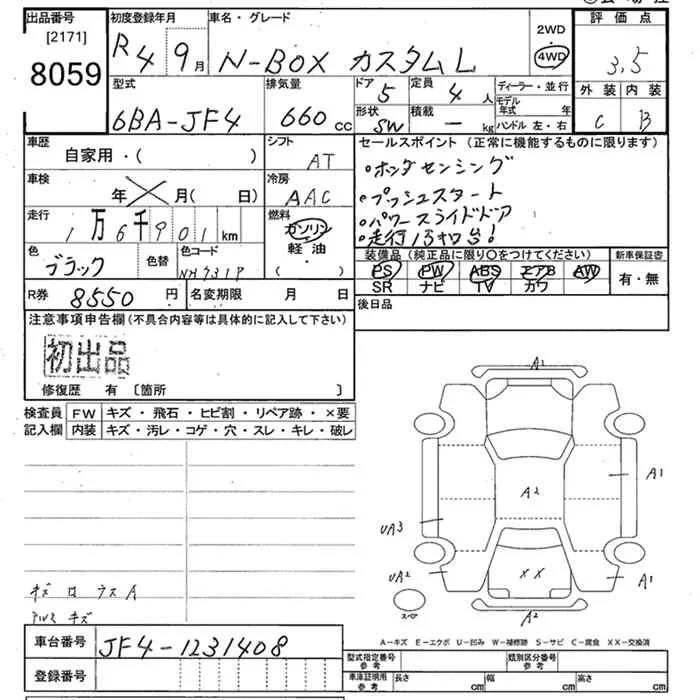 出品番号 初度登録年月 車名・グレード 評価点
[2171] 2WD
8059 R4 9月 N-BOX カスタムL 4WD 3.5
型式 排気量 ドア 5 定員 4人 ディーラー・並行 外装 内装
6BA-JF4 660cc 形状 SW 積載 ー kg モデル年式 年 C B
ハンドル 左・右
車歴 シフト セールスポイント (正常に機能するものに限ります)
自家用・( ) AT •ホンダセンシング
車検 年 月( 日) 冷房 AAC •プッシュスタート
走行 1万6千901km 燃料 ガソリン •パワースライドドア
軽油 •走行1万キロ台!
色 ブラック 色替 色コード NH731P ( ) 装備品 (純正品に限り○をつけてください) 新車保証書
PS PW ABS エアB AW 有・無
SR ナビ TV カワ
R券 8550円 名変期限 月 日 後日品
注意事項申告欄 (不具合内容等は具体的に記入して下さい)
初出品
修復歴 有 〔箇所 〕
検査員 FW キズ・飛石・ヒビ割・リペア跡・×要
記入欄 内装 キズ・汚レ・コゲ・穴・スレ・キレ・破レ
A1
A1
A2
UA3
UA2 XX A1
スペア A2
アルミ キズ
A-キズ E-エクボ U-凹み W-補修跡 S-サビ C-腐食 XX-交換済
車台番号 JF4-1231408
型式指定番号 参考 類別区分番号 参考
登録番号 車庫証明用 参考 長さ cm 幅 cm 高さ cm